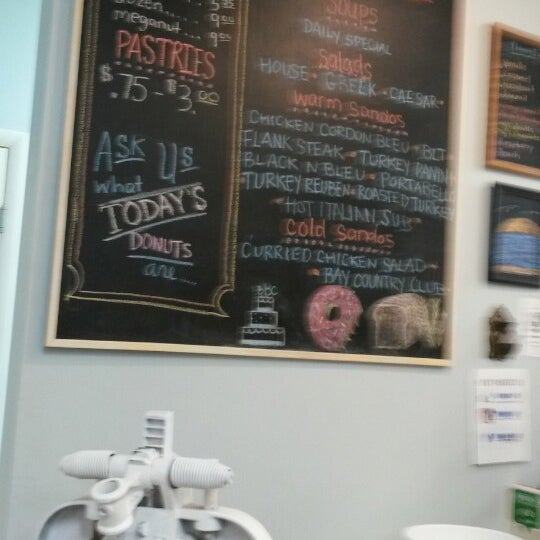 DOZEN.... 
MEGANUT.... 9.00
PASTRIES
$.75-$3.00
ASK US
what
TODAY'S
DONUTS
are....
SOUPS
DAILY SPECIAL
Salads
HOUSE • GREEK • CAESAR
warm Sandos
CHICKEN CORDON BLEU • BLT
FLANK STEAK • TURKEY
BLACK N BLEU • PORTABELLO
TURKEY REUBEN • ROASTED TURKEY
• HOT ITALIAN SUB
Cold Sandos
CURRIED CHICKEN SALAD
• BAY COUNTRY CLUB
BBC